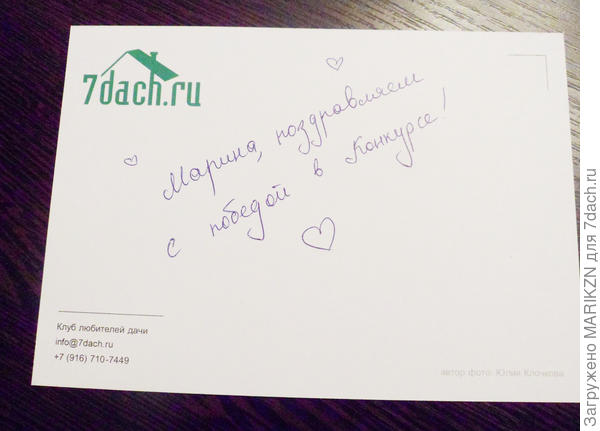 7dach.ru
Марина, поздравляем
с победой в Конкурсе!
Клуб любителей дачи
info@7dach.ru
+7 (916) 710-7449
автор фото: Юлия Клочкова
Загружено MARIKZN для 7dach.ru